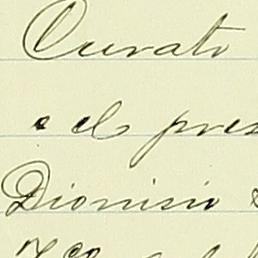 Curato
el pres
Dionisio